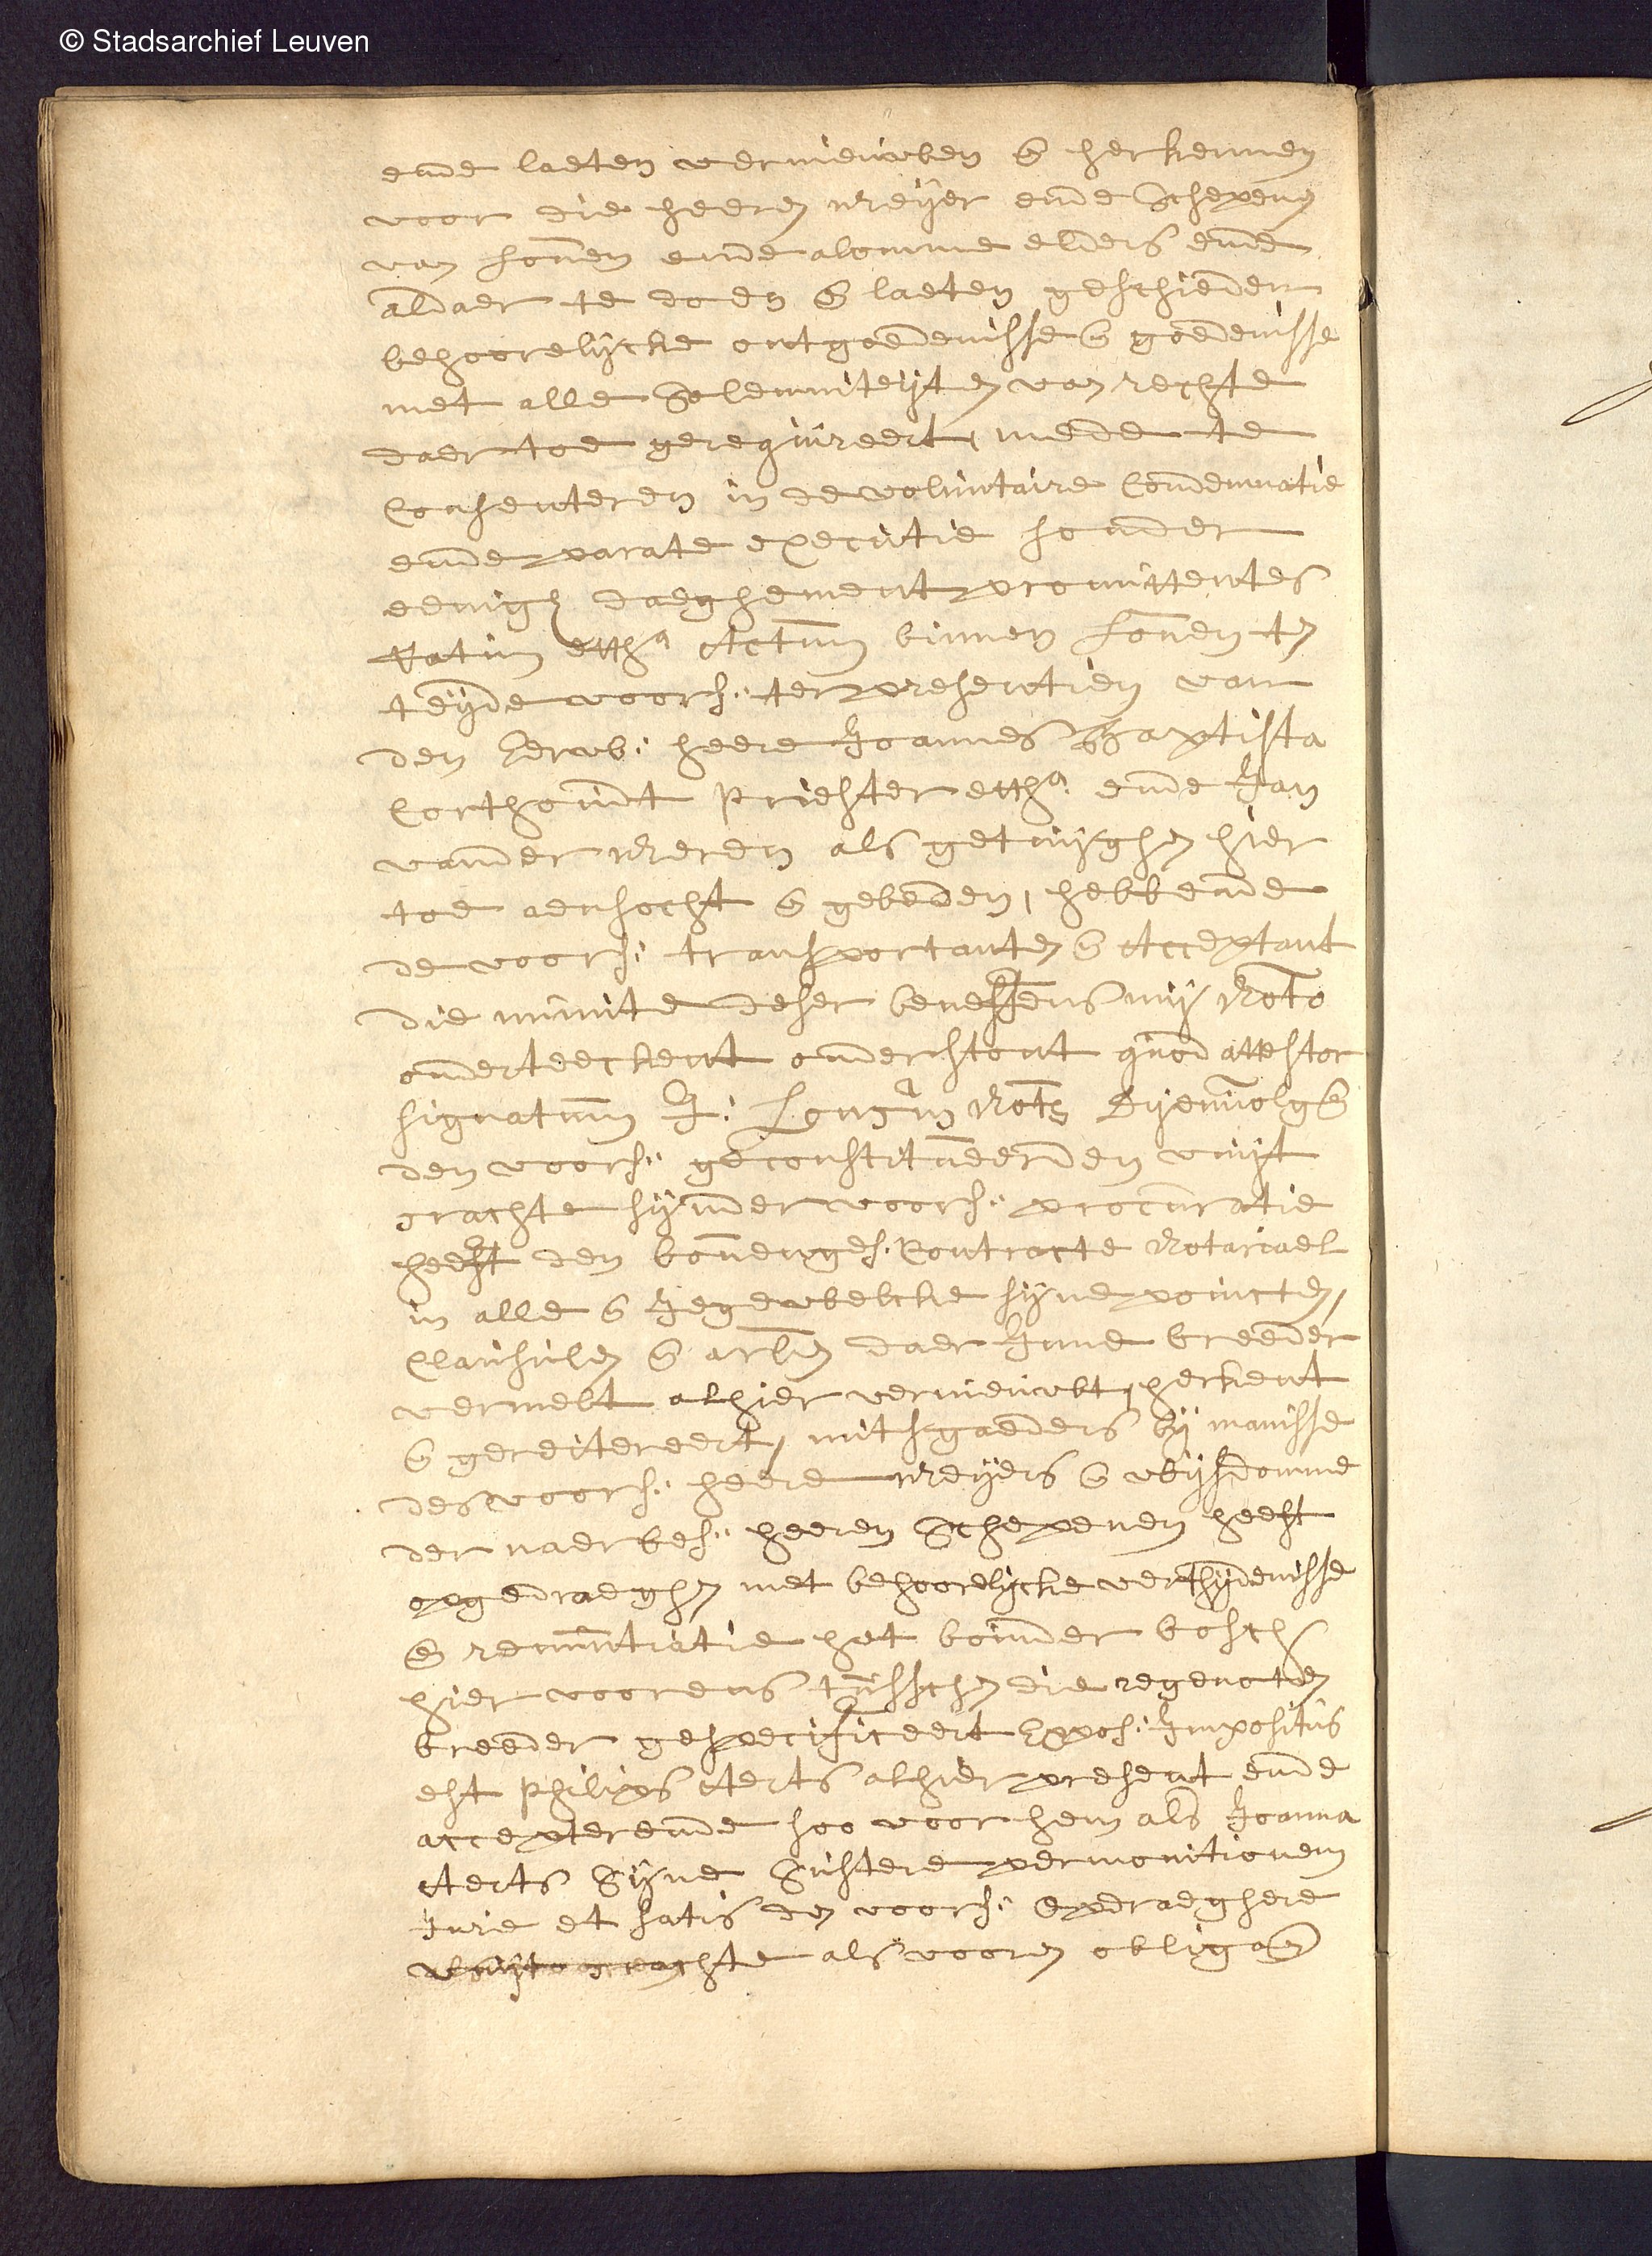 © Stadsarchief Leuven
ende laeten vernieuwen en̄ herkennen
voor die heeren Meijer ende Schepenen
van Loven ende alomme elders ende
aldaer te doen en̄ laeten geschieden
behoorelijcke ontgoedenisse en̄ goedenisse
met alle Solemniteijten van rechte
daer toe gerequireert, mede te
Consenteren in de voluntaire Condemnatie
ende parate executie sonder
eenigh daeghement promittentes
Ratum ettha Actum binnen Loven ten
teijde voors: ter presentien van
den Eerw: heere Joannes Baptista
Corthoudt Priester ettha. ende Jan
vander Meren als getuijghen hier
toe aensocht en̄ gebeden, hebbende
de voors: transportanten en̄ Acceptant
die minute deser beneffens mij Noto
onderteeckent onderstont quod attestor
signatum J: Not̄s Dijenvolgen̄
den voors: geconstitueerden vuijt
crachte sijnder voors: procuratie
heeft den bovenges. Contracte Notariael
in alle en̄ Jegewelcke sijne poincten,
Clausulen en̄ arlen̄ daer Inne breeder
vermelt alhier vernieuwt, herkent
en̄ gereitereert, mitsgaeders bij manisse
des voors: heere Meijers en̄ wijsdomme
der naerbes: heeren Schepenen heeft
opgedraeghen met behoorelijcke verthijdenisse
en̄ renuntiatie het boinder bosch
hier voorens tusschen die regenoten
breeder gespecificeert Expos: Impositus
est Philips Aerts alhier present ende
accepterende soo voor hem als Joanna
Aerts Sijne Sustere per monitionem
Jure et satis den voors: Opdraeghere
vuijt crachte als vooren obligen̄